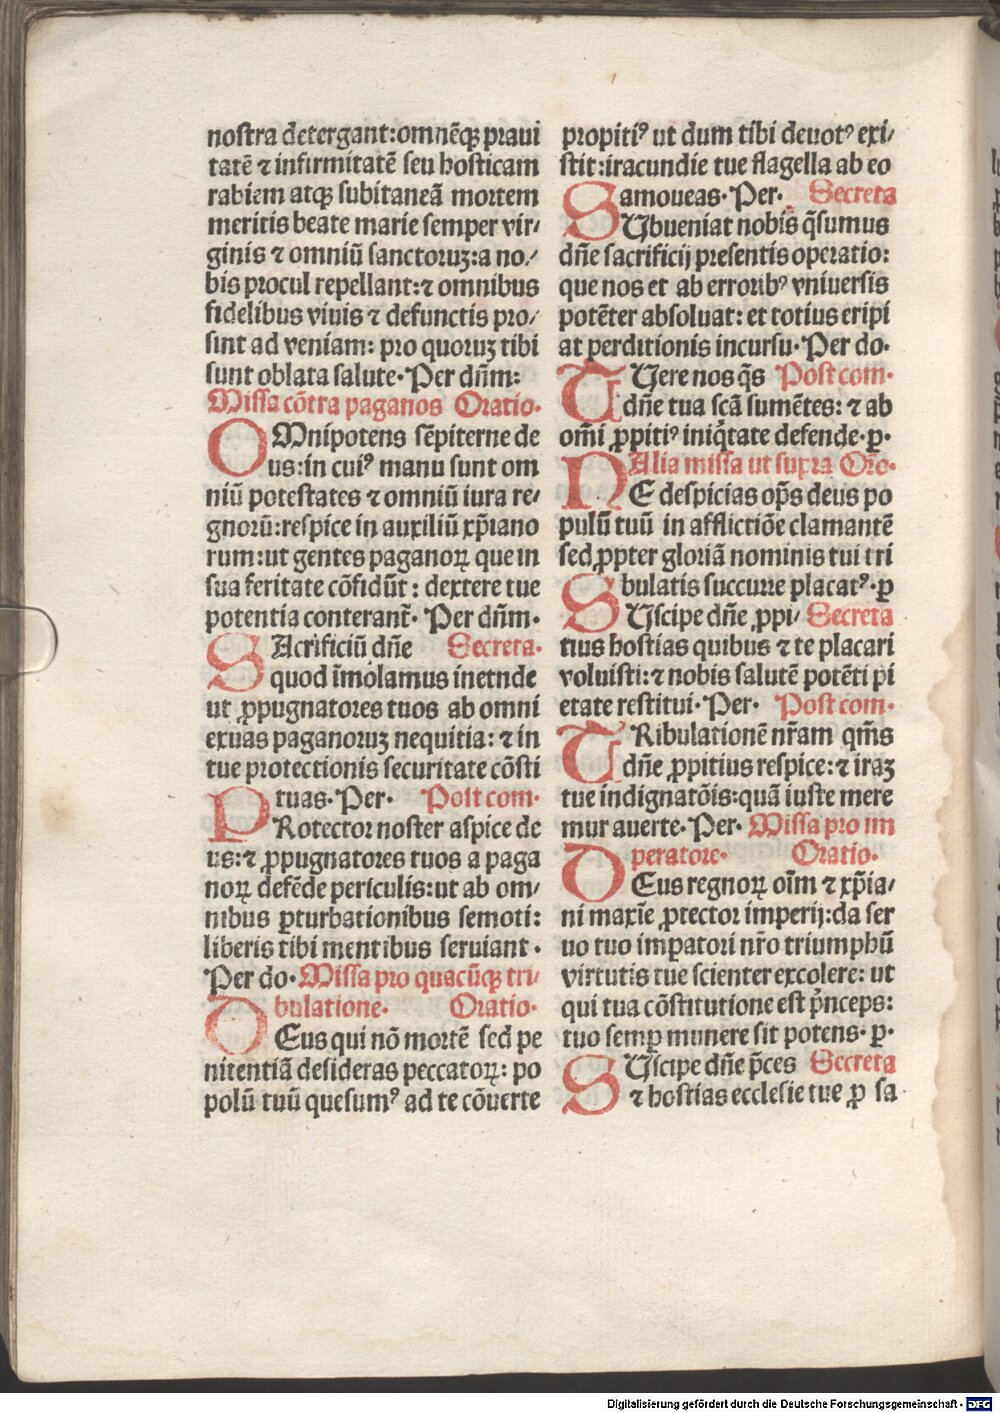 nostra detergant:omnēqꝫ praui
tatē ⁊ infirmitatē seu hosticam
rabiem atqꝫ subitaneā mortem
meritis beate marie semper vir⸗
ginis ⁊ omniū sanctoruꝫ:a no⸗
bis procul repellant:⁊ omnibus
fidelibus viuis ⁊ defunctis pro⸗
sint ad veniam: pro quoruꝫ tibi
sunt oblata salute. Per dn̄m:
Missa cōtra paganos Oratio.
OMnipotens sēpiterne de
us:in cuiꝰ manu sunt om
niū potestates ⁊ omniū iura re⸗
gnorū:respice in auxiliū xp̄iano
rum:ut gentes paganoꝝ que in
sua feritate cōfidūt : dextere tue
potentia conterant̄. Per dn̄m.
SAcrificiū dn̄e Secreta.
quod īmolamus inetnde
ut ꝓpugnatores tuos ab omni
exuas paganoruꝫ nequitia: ⁊ in
tue protectionis securitate cōsti
tuas. Per. Post com.
PRotector noster aspice de
us:⁊ ꝓpugnatores tuos a paga
noꝝ defēde periculis:ut ab om⸗
nibus ꝑturbationibus semoti:
liberis tibi mentibus seruiant .
Per do. Missa pro quacūqꝫ tri⸗
bulatione. Oratio.
DEus qui nō mortē sed pe
nitentiā desideras peccatoꝝ: po
polū tuū quesumꝰ ad te cōuerte
propitiꝰ ut dum tibi deuotꝰ exi⸗
stit:iracundie tue flagella ab eo
amoueas. Per. Secreta
SUbueniat nobis q̄sumus
dn̄e sacrificij presentis operatio:
que nos et ab erroribꝰ vniuersis
potēter absoluat: et totius eripi
at perditionis incursu. Per do.
TUere nos q̄s Post com.
dn̄e tua scā sumētes: ⁊ ab
om̄i ꝓpitiꝰ iniq̇tate defende. p.
Alia missa ut supra Oro.
NE despicias op̄s deus po
pulū tuū in afflictiōe clamantē
sed ꝓpter gloriā nominis tui tri
bulatis succurre placatꝰ. p
SUscipe dn̄e ꝓpi⸗ Secreta
tius hostias quibus ⁊ te placari
voluisti:⁊ nobis salutē potēti pi
etate restitui. Per. Post com.
TRibulationē nr̄am qm̄s
dn̄e ꝓpitius respice:⁊ iraꝫ
tue indignatōis:quā iuste mere
mur auerte. Per. Missa pro im
peratore. Oratio.
DEus regnoꝝ oīm ⁊ xp̄ia⸗
ni maxīe ꝓtector imperij:da ser
uo tuo imꝑatori nr̄o triumphū
virtutis tue scienter excolere: ut
qui tua cōstitutione est p̄nceps:
tuo semꝑ munere sit potens. p.
SUscipe dn̄e p̄ces Secreta
⁊ hostias ecclesie tue ꝓ sa
Digitalisierung gefördert durch die Deutsche Forschungsgemeinschaft - DFG